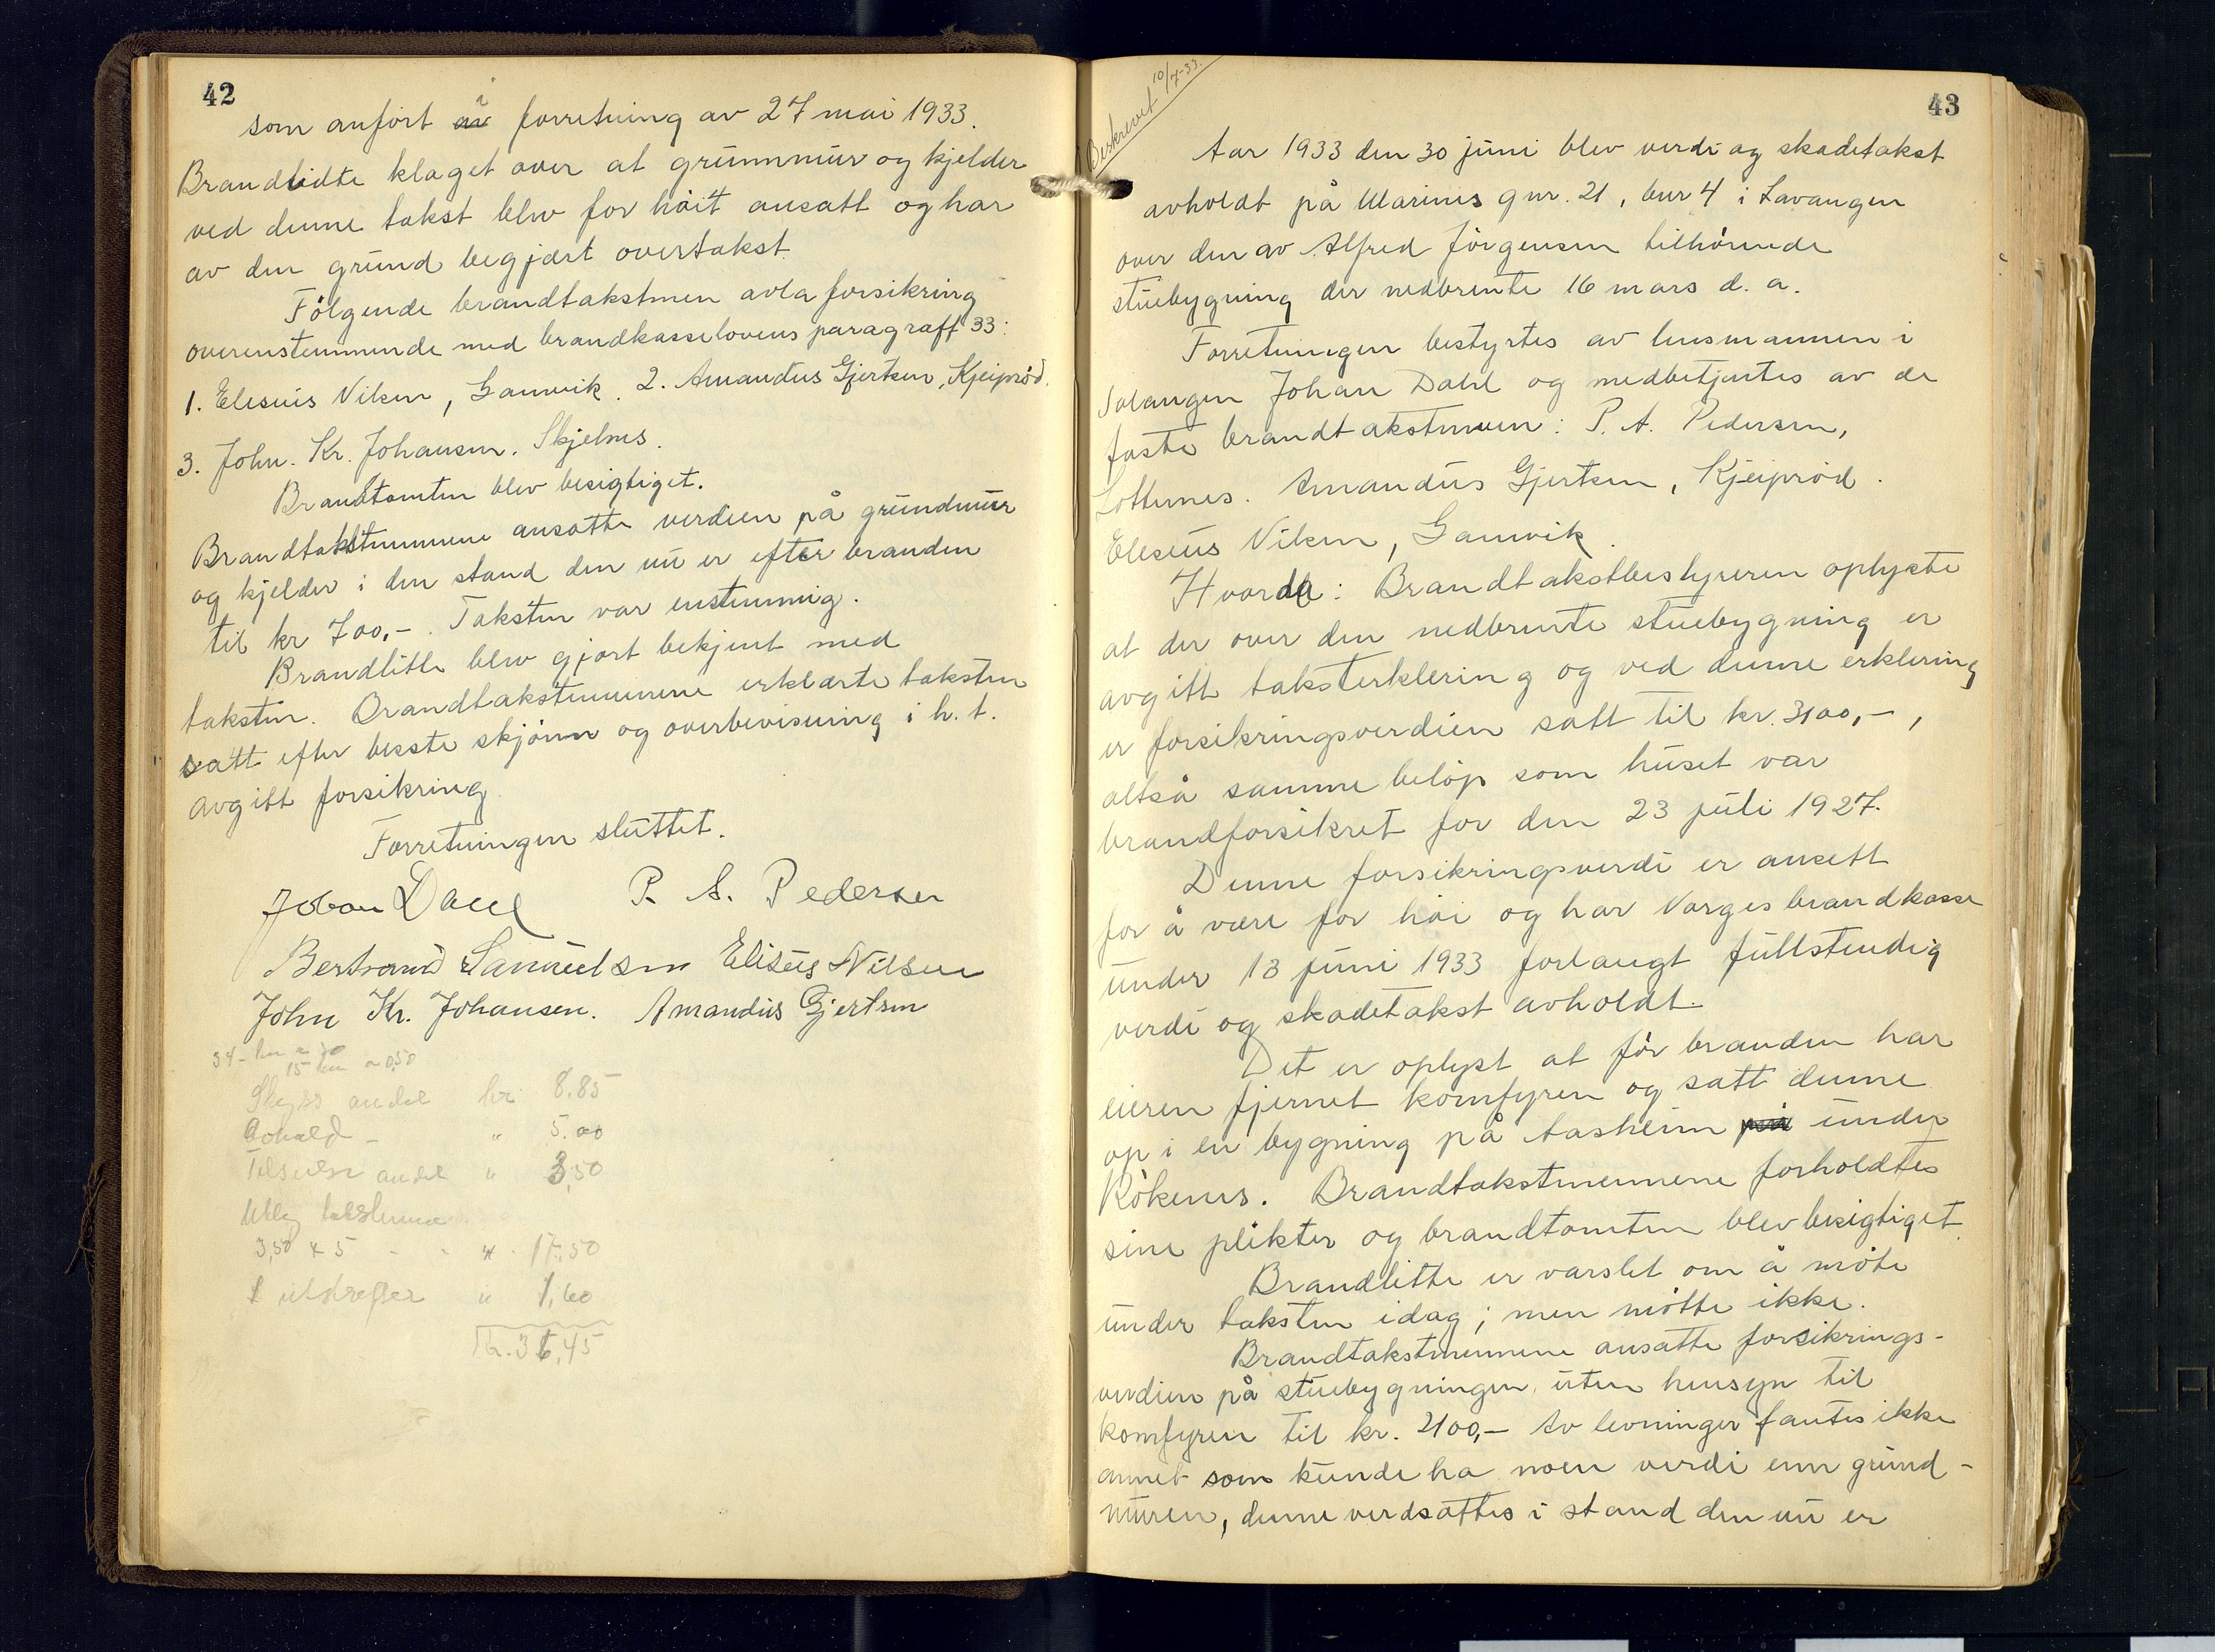 42
som anført av i forretning av 27 mai 1933.
Brandlidte klaget over at grunnmur og kjelder
ved denne takst blev for høit ansatt og har
av den grund begjært overtakst.
Følgende brandtakstmen avla forsikring
overenstemmende med brandkasselovens paragraff 33:
1. Eleseus Nilsen, Gamvik. 2. Amandus Gjertsen, Kjeiprød.
3. John. Kr. Johansen. Skjelnes.
Brandtomten blev besigtiget.
Brandtakstmennene ansatte verdien på grundmur
og kjelder i den stand den nu er efter branden
til kr 700,-. Taksten var enstemmig.
Brandlitte blev gjort bekjent med
taksten. Brandtakstmennene erklærte taksten
satt efter beste skjønn og overbevisning i h. t.
avgitt forsikring.
Forretningen sluttet.
Johan Dahl P. A. Pedersen
Bertrand Samuelsen Eliseus Nilsen
John Kr. Johansen. Amandus Gjertsen
34- km a
15 km a 0,50
Skyss andel kr 8.85
Avhold - " 5.00
Tilsulsn andel " 3,50
Utlg takstmenn
3,50 x 5 - - " - 17,50
1 utskrefter " 1,60
Kr. 36,45
43
Beskrevet 10/7-33.
Aar 1933 den 30 juni blev verdi og skadetakst
avholdt på Marines gnr. 21, bnr 4 i Lavangen
over den av Alfred Jørgensen tilhørende
stuebygning der nedbrente 16 mars d. a.
Forretningen bestyrtes av lensmannen i
Salangen Johan Dahl og medbetjentes av de
faste brandtakstmenn: P. A. Pedersen,
Løttenes. Amandus Gjertsen, Kjeiprød.
Eleseus Nilsen, Gamvik.
Hvorda: Brandtakstbestyreren oplyste
at der over den nedbrente stuebygning er
avgitt taksterklering og ved denne erklering
er forsikringsverdien satt til kr. 3100,-,
altså samme beløp som huset var
brandforsikret for den 23 juli 1927.
Denne forsikringsverdi er ansett
for å være for høi og har Norges brandkasse
under 13 juni 1933 forlangt fullstendig
verdi og skadetakst avholdt.
Det er oplyst at før branden har
eieren fjernet komfyren og satt denne
op i en bygning på Aasheim på under
Røkenes. Brandtakstmennene forholdtes
sine plikter og brandtomten blev besigtiget.
Brandlitte er varslet om å møte
under taksten idag; men møtte ikke.
Brandtakstmennene ansatte forsikrings-
verdien på stuebygningen uten hensyn til
komfyren til kr. 2100,- Av levninger fantes ikke
annet som kunde ha noen verdi enn grund-
muren, denne verdsattes i stand den nu er